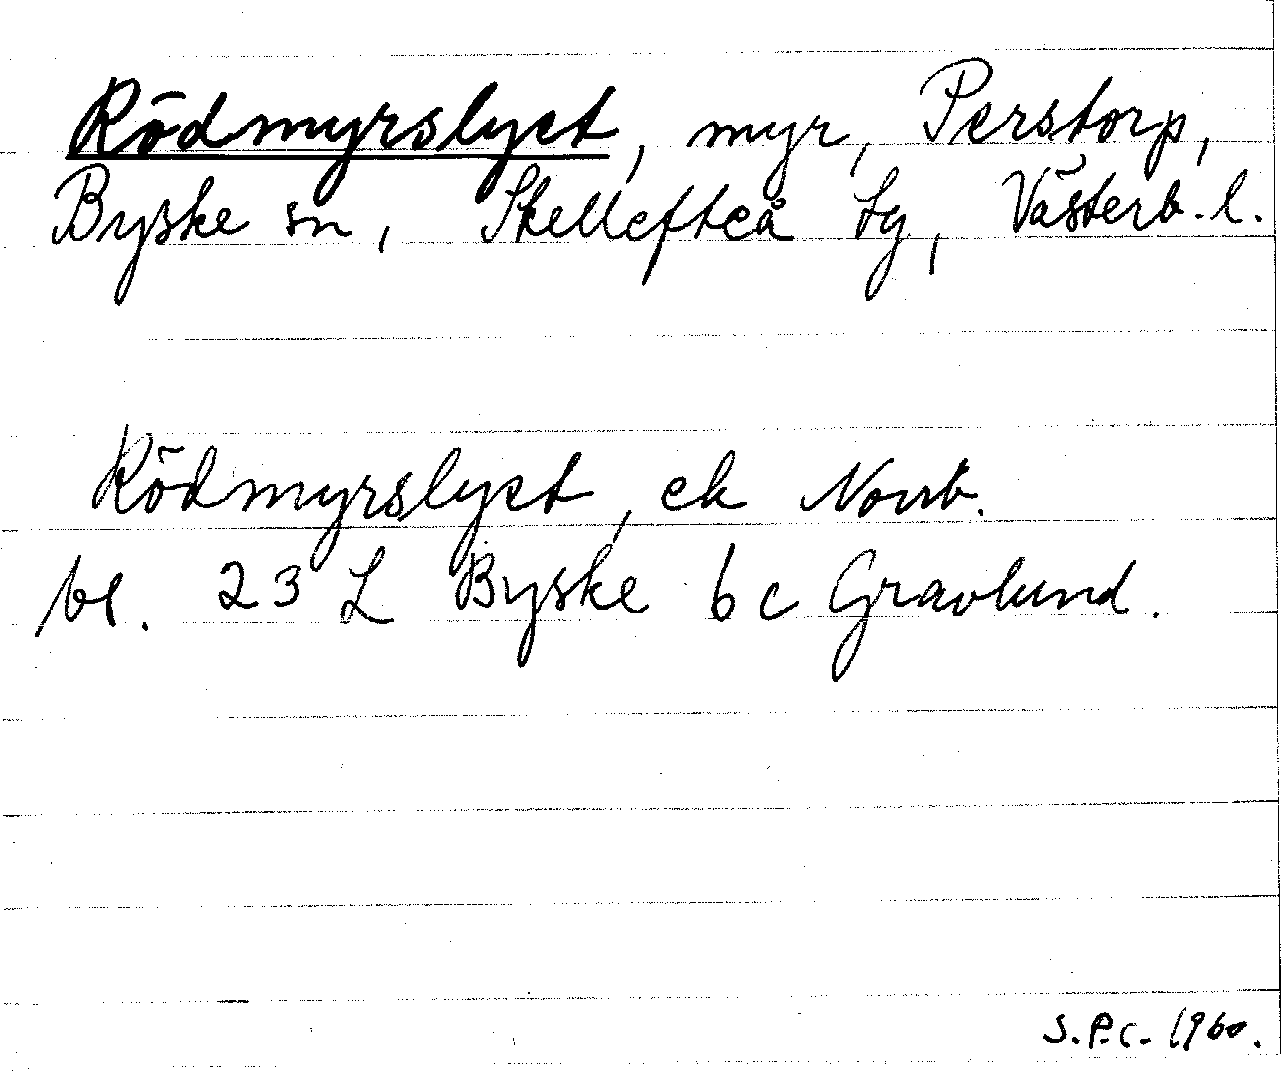 Rödmyrslyct, myr, Perstorp,
Byske sn, Skellefteå tg, Västerb. l.
Rödmyrslyct, ek Norrb.
bl. 23 L Byske 6 c Gravlund.
S.P.C. 1960.